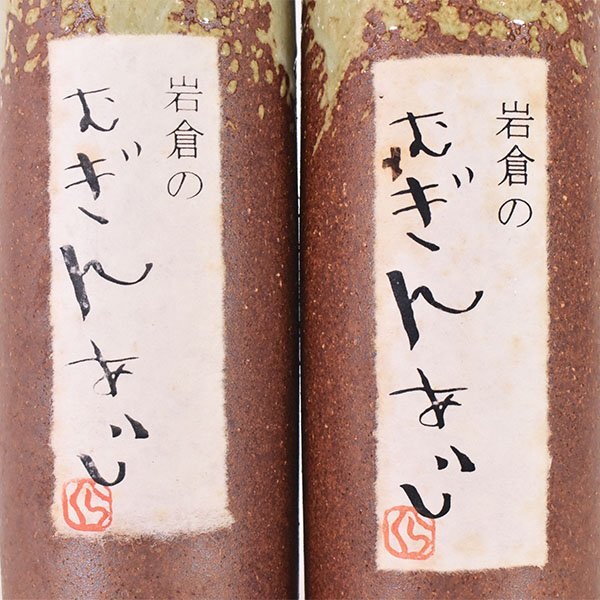 岩倉の
むぎんあじ
くら
岩倉の
むぎんあじ
くら